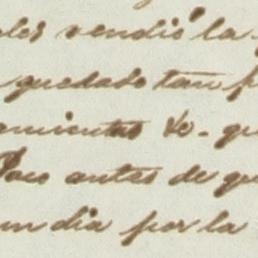 les vendió la
quedado tan p
omientas &c. qu
Poco antes de qu
un dia por la